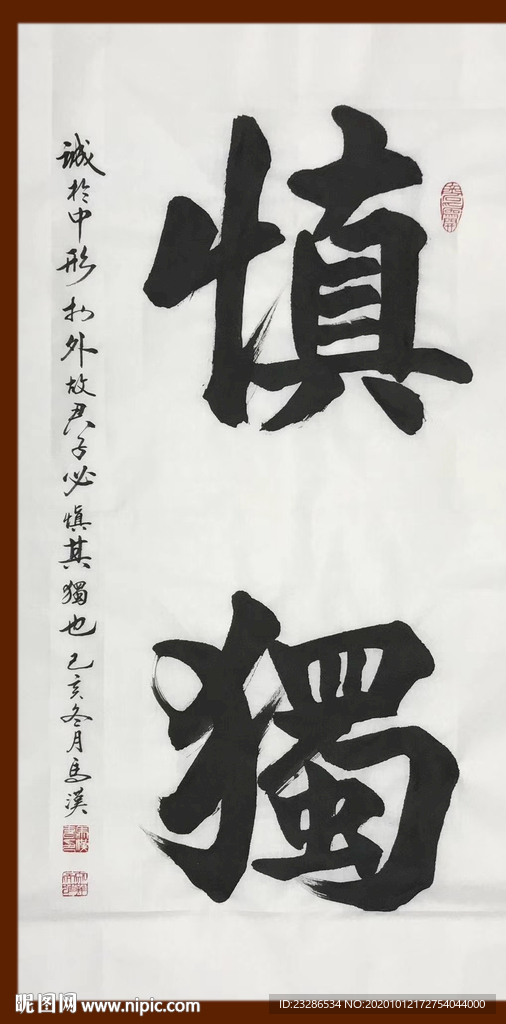 慎獨
誠於中形於外故君子必慎其獨也己亥冬月馬漢
昵图网 www.nipic.com
ID:23286534 NO:20201012172754044000